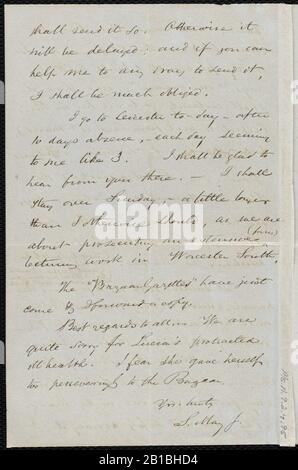 shall send it so. Otherwise it
will be delayed; and if you can
help me to any way to send it,
I shall be much obliged.
I go to Leicester to-day - after
10 days absence, each day seeming
to me like 3. I shall be glad to
hear from you there. - I shall
stay over Sunday, - a little longer
than I otherwise should, as we are
about prosecuting an extensive
lecturing work in Worcester South.
The "Bazaar Gazettes" have just
come & I forward a copy.
Best regards to all. We are
quite sorry for Lucia's protracted
ill health. I fear she gave herself
too perseveringly to the Bazaar.
Yrs. truly
S. May Jr.
Ms.A.9.2.
alamy
Image ID: 2B1BHD4
www.alamy.com